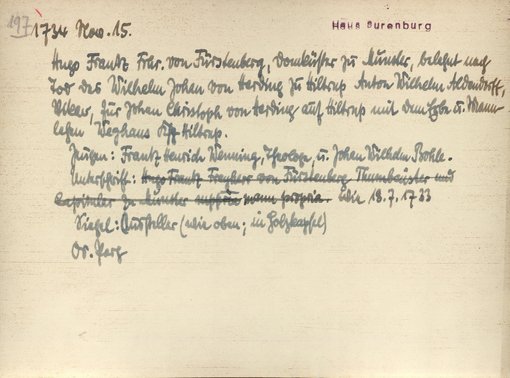 197
1734 Nov. 15.
Haus Surenburg
Hugo Frantz Frhr. von Fürstenberg, Domküster zu Münster, belehnt nach
Tod des Wilhelm Johan von Herding zu Hiltrup Anton Wilhelm Aldendorff,
Vikar, für Johan Christoph von Herding auf Hiltrup mit dem Erbe u. Mann-
lehen Weghaus Ksp Hiltrup.
Zeugen: Frantz Henrich Wenning, Theologe, u. Johan Wilhelm Bohle.
Unterschrift: Hugo Frantz Freyherr von Fürstenberg Thumbcüster und
Capitular zu Münster mppria manu propria. wie 18.7.1733
Siegel: Aussteller (wie oben; in Holzkapsel)
Or. Perg